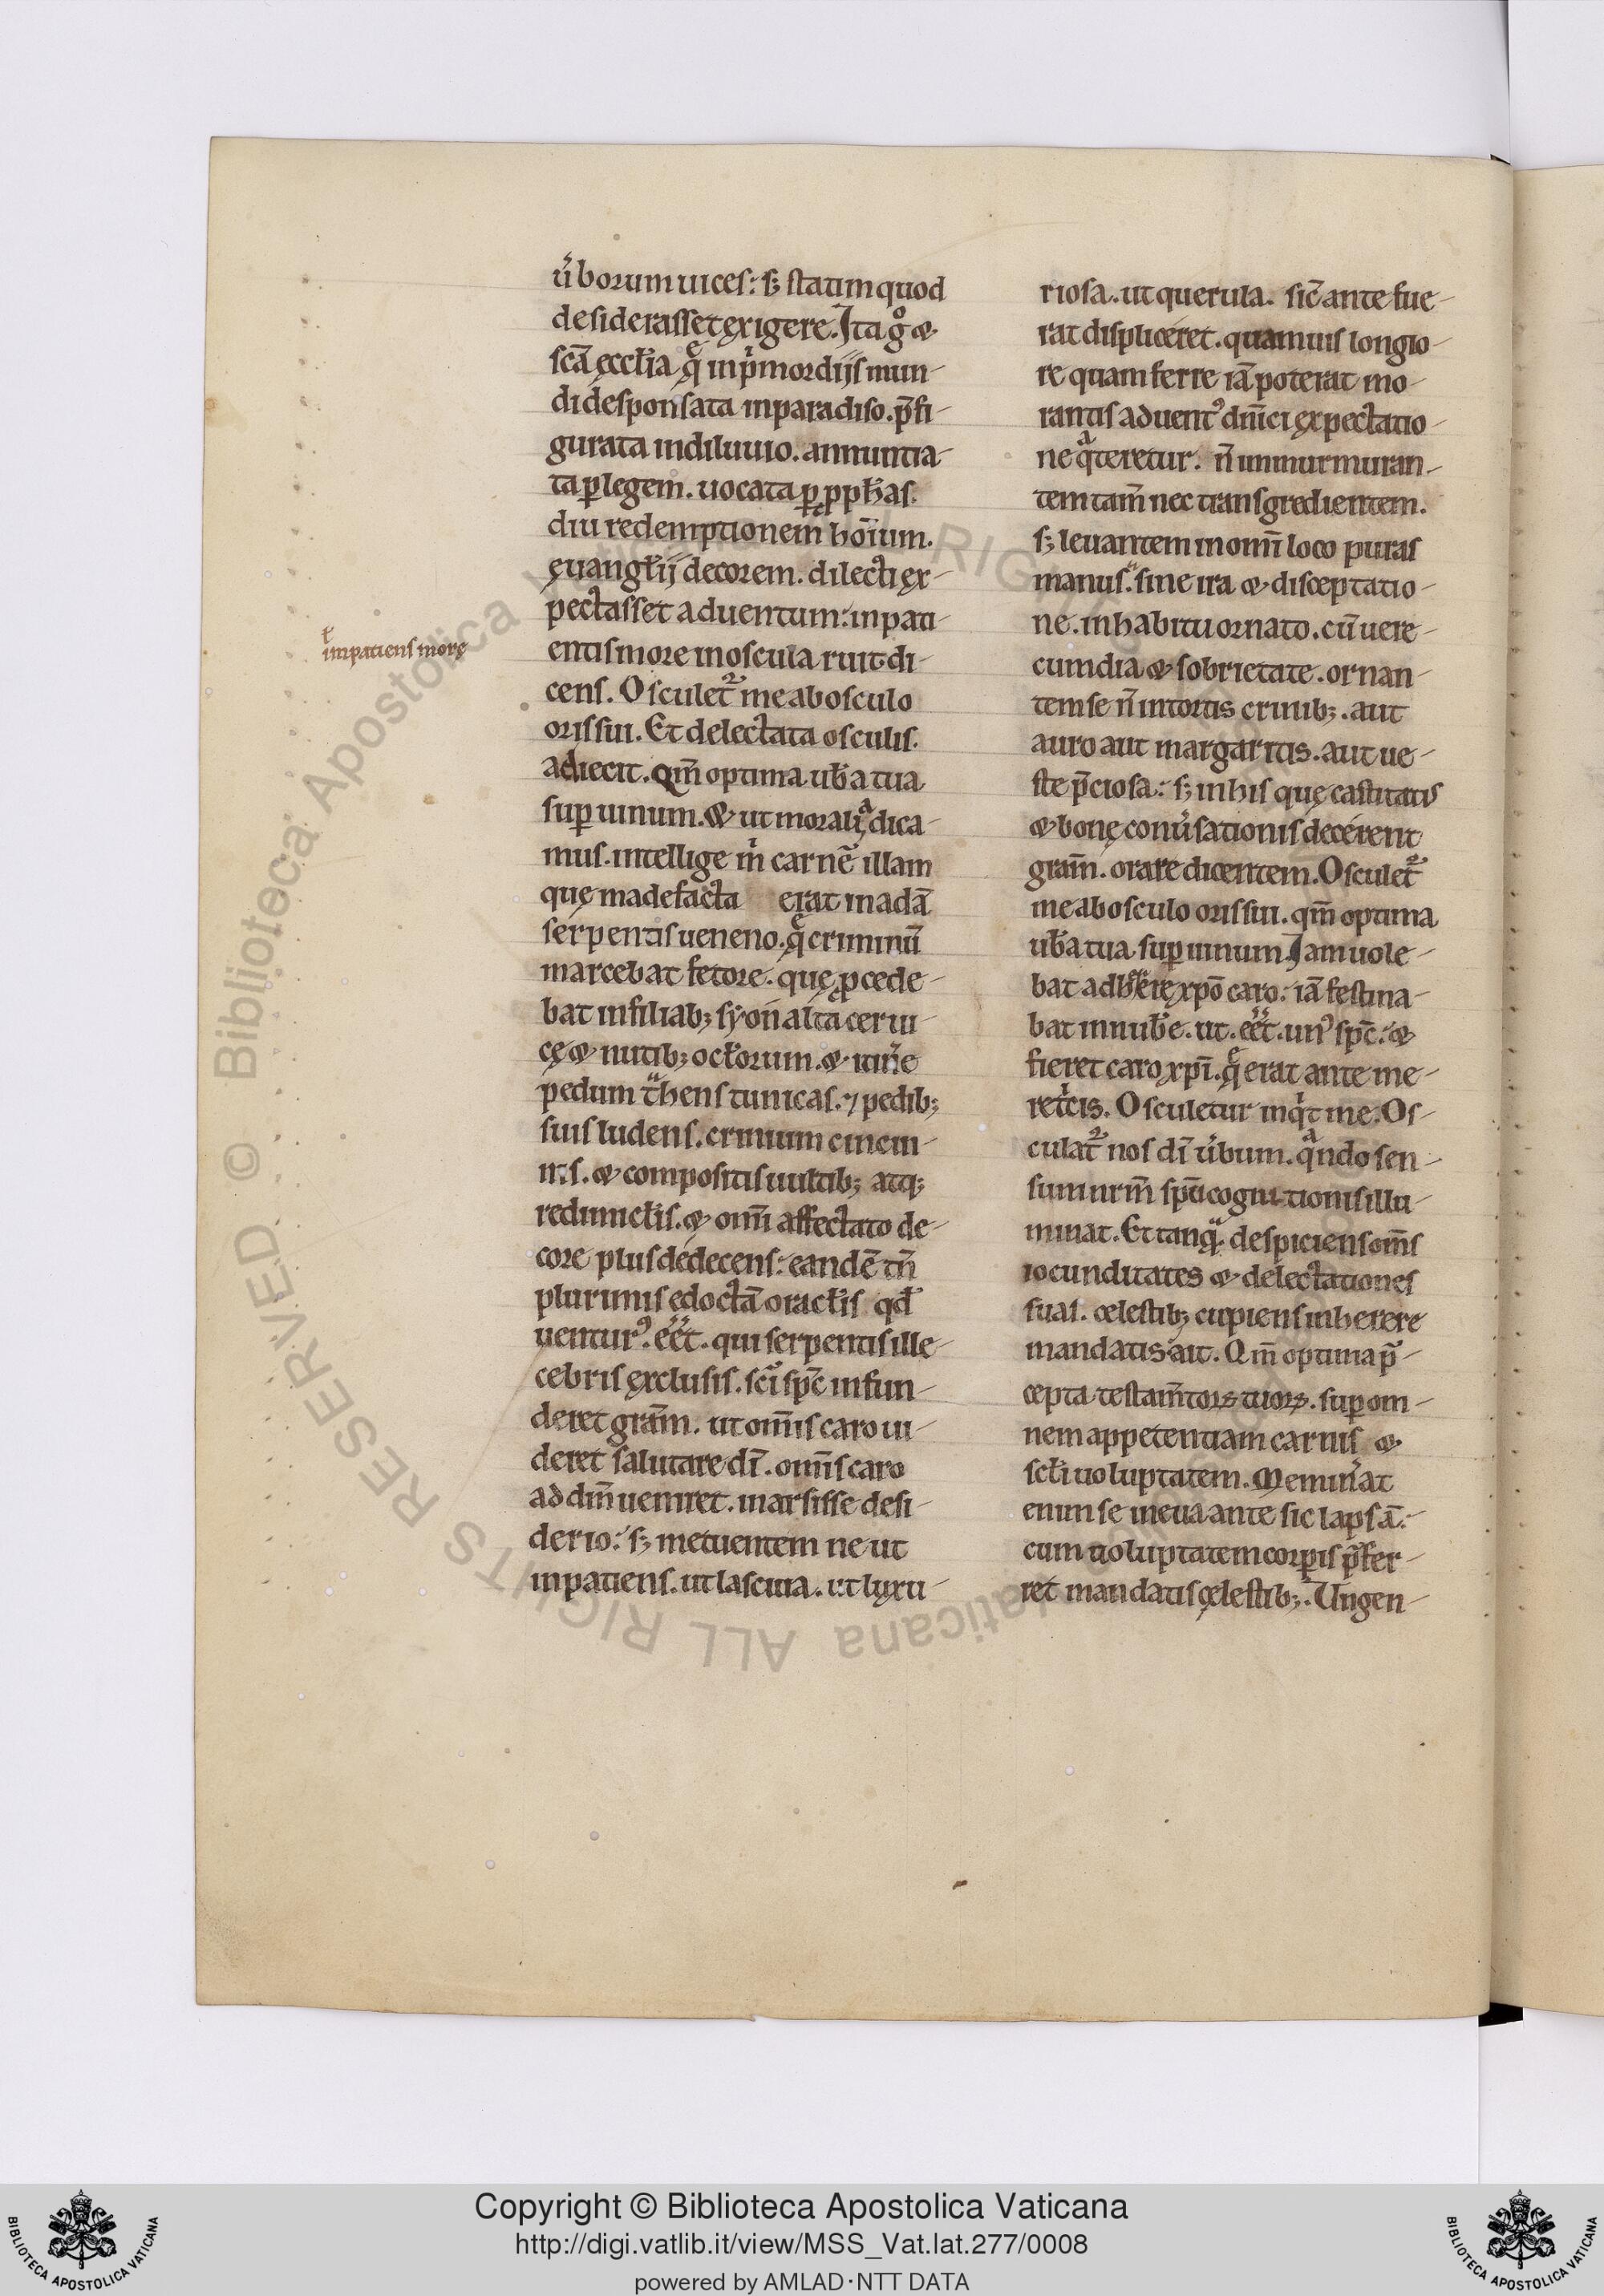 ũborum uices: sꝫ statim quod
desiderasset exigere. Ita gͦ &
scā ęccłia q̨ͤ in pⁱmordijs mun-
di desponsata in paradiso. p̄fi-
gurata in diluuio. annuntia-
ta ꝑ legem. uocata ꝑ ꝓph̄as.
diu redemptionem hoīum.
ęuangłij decorem. dilecti ex-
pectasset aduentum: inpati-
entis more in oscula ruit di-
cens. Osculet᷑ me ab osculo
oris sui. Et delectata osculis.
adiecit. Qm̄ optima ub̄a tua
suꝑ uinum. & ut moraliᷓ dica-
mus. intellige m̊ carnē illam
quę madefacta erat in adā
serpentis ueneno. q̨ͤ criminū
marcebat fetore. quę ꝓcede-
bat in filiabꝫ syon alta cerui-
cę & nutibꝫ ocłorum. & itin̄e
pedum t̄hens tunicas. ⁊ pedibꝫ
suis ludens. crinium cincin-
nis. & compositis uultibꝫ atqꝫ
redimicłis. & omī affectato de-
core plus dedecens: eandē tn̄
plurimis edoctā oracłis qđ
uenturꝰ. eēt. qui serpentis ille-
cebris exclusis. scī spc̄ infun-
deret grām. ut om̄is caro ui-
deret salutare dī. om̄is caro
ad dm̄ ueniret. inarsisse desi-
derio: sꝫ metuentem ne ut
inpatiens. ut lasciua. ut luxu-
ł
impatiens morę
riosa. ut querula. sic̄ ante fue-
rat displiceret. quamuis longio-
re quam ferre iā poterat mo-
rantis aduentꝰ dn̄ici expectatio-
ne qᷓteretur. n̄ inmurmuran-
tem tam̄ nec transgredientem.
sꝫ leuantem in omī loco puras
manus. sine ira & disceptatio-
ne. in habitu ornato. cū uere-
cumdia & sobrietate. ornan-
tem se n̄ intortis crinibꝫ. aut
auro aut margaritis. aut ue-
ste p̄ciosa: sꝫ in his quę castitatis
& bonę conũsationis decerent
gram̄. orare dicentem. Osculet᷑
me ab osculo oris sui. qm̄ optima
ub̄a tua suꝑ uinum. Iam uole-
bat adh̄erę xp̄o caro: iā festina-
bat innub̄e. ut. eēt. unꝰ spc̄: &
fieret caro xp̄i. q̨ͤ erat ante me-
retⁱcis. Osculetur inqⁱt me. Os-
culat᷑ nos dī ũbum. qᷓndo sen-
sum nrm̄ spū cognitionis illu-
minat. Et tanqᷓ. despiciens om̄s
iocunditates & delectationes
suas. cęlestibꝫ cupiens inherere
mandatis ait. Qm̄ optima p̄-
cepta testam̄toꝝ tuoꝝ. suꝑ om-
nem appetentiam carnis &
scłi uoluptatem. Memin̄at
enim se in eua ante sic lapsā:
cum uoluptatem corꝑis p̄fer-
ret mandatis cęlestibꝫ. Ungen-
Copyright © Biblioteca Apostolica Vaticana
http://digi.vatlib.it/view/MSS_Vat.lat.277/0008
powered by AMLAD·NTT DATA